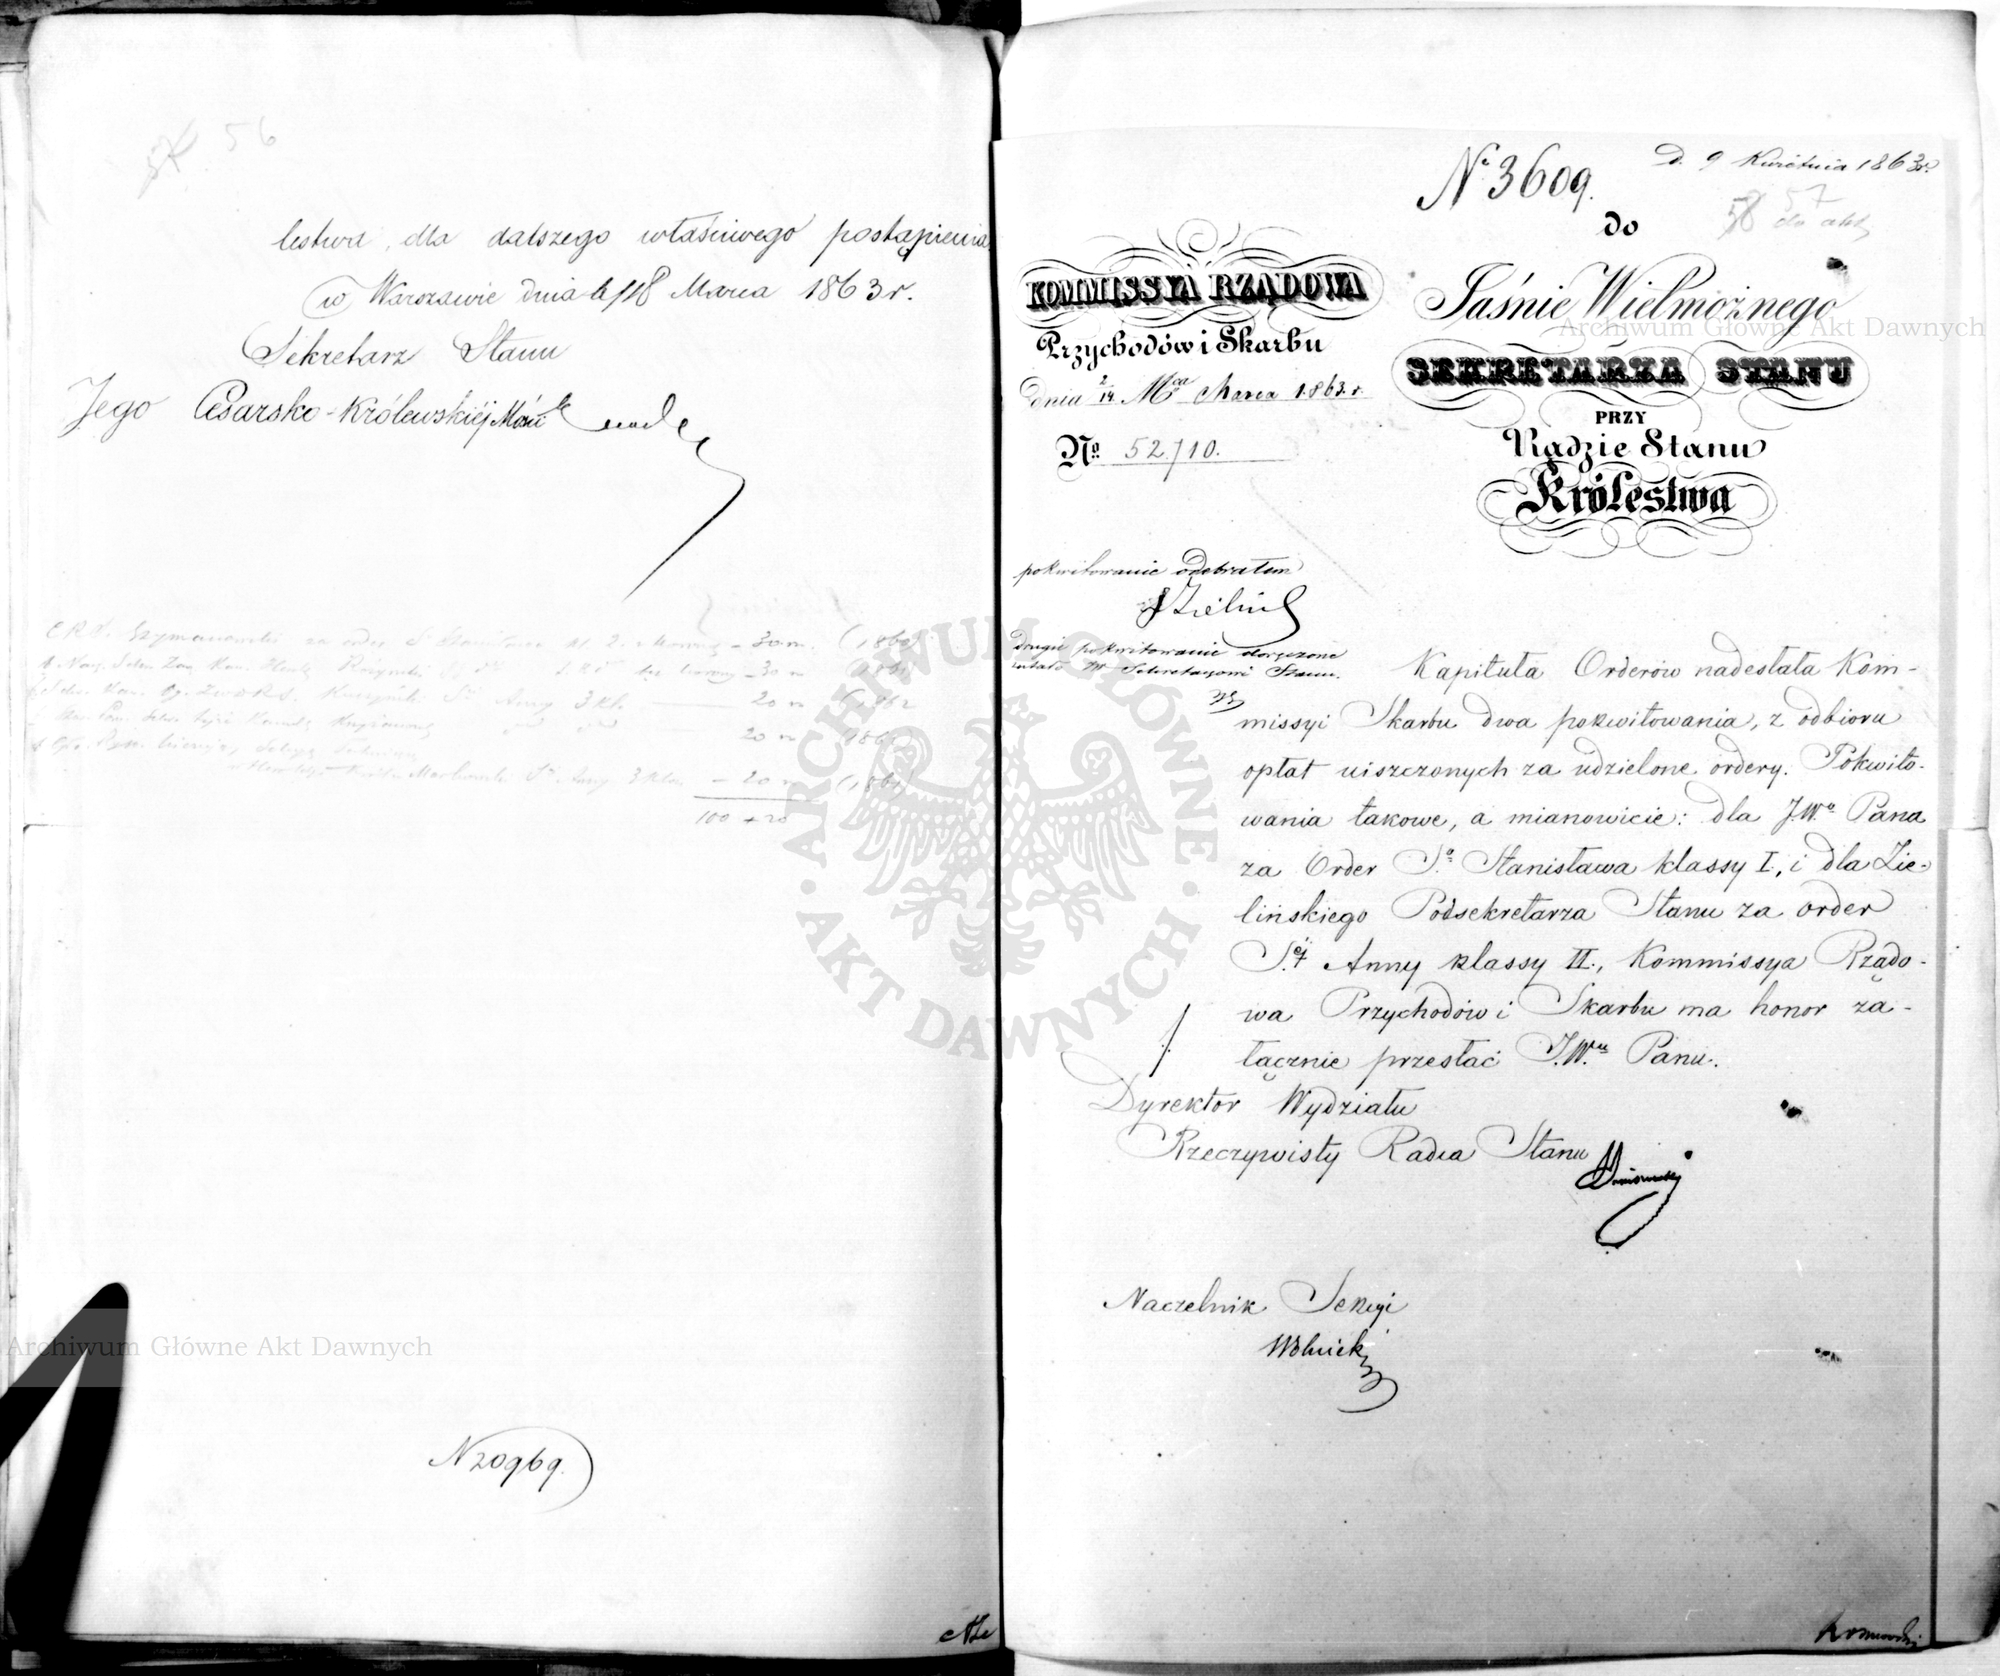 56
lestwa, dla dalszego właściwego postąpienia
w Warszawie dnia 6/18 Marca 1863 r.
Sekretarz Stanu
Jego Cesarsko-Królewskiéj Mości
Szymanowski za order S. Stanisława kl. 2. 30 (1860)
30
Anny 3 kl 20 (1862
20
Anny 3 klas 20
100 + 20
N 20969.
N 3609.
D. 9 Kwietnia 1863 r.
57
do akt
do
KOMMISSYA RZĄDOWA
Przychodów i Skarbu
dnia 2/14 Marca 1863. r.
No. 52,710.
Jaśnie Wielmożnego
SEKRETARZA STANU
PRZY
Radzie Stanu
Królestwa
pokwitowanie odebrałem
drugie pokwitowanie doręczone
JW Sekretarzowi Stanu.
Kapituła Orderów nadesłała Kom-
missyi Skarbu dwa pokwitowania, z odbioru
opłat uiszczonych za udzielone ordery. Pokwito-
wania takowe, a mianowicie: dla J.W.o Pana
za Order S.o Stanisława klassy I., i dla Zie-
lińskiego Podsekretarza Stanu za order
S.ej Anny klassy II., Kommissya Rządo-
wa Przychodów i Skarbu ma honor za-
łącznie przesłać J.W.mu Panu.
Dyrektor Wydziału
Rzeczywisty Radca Stanu
Naczelnik Sekcyi
Wolnicki
Archiwum Główne Akt Dawnych
Archiwum Główne Akt Dawnych
ARCHIWUM GŁÓWNE AKT DAWNYCH